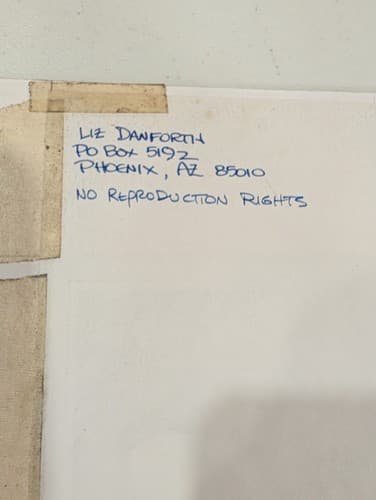 LIZ DANFORTH
PO BOX 5192
PHOENIX, AZ 85010
NO REPRODUCTION RIGHTS